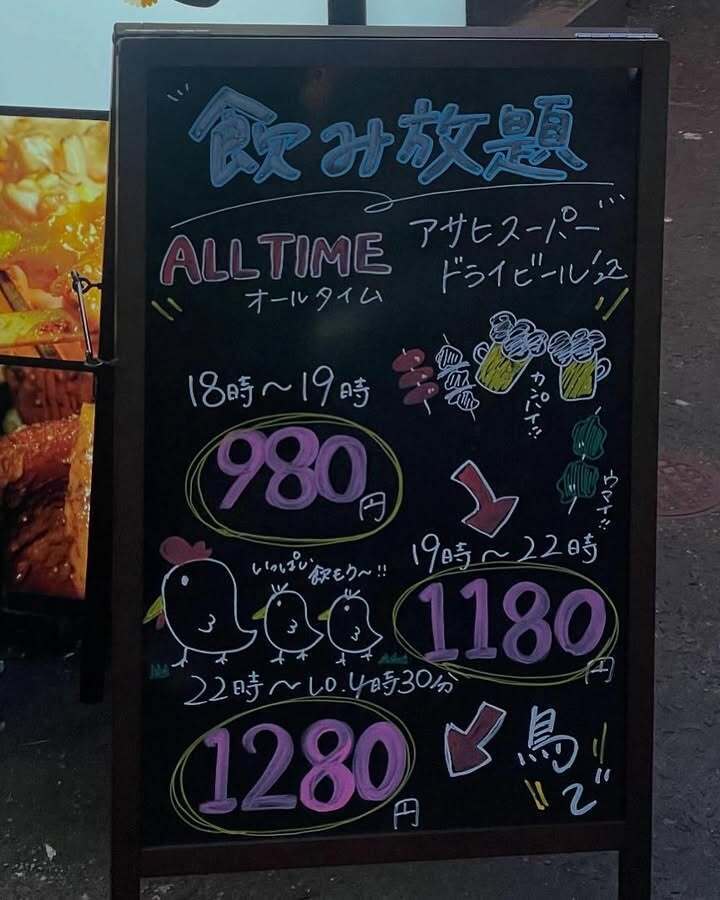 飲み放題
ALL TIME
オールタイム
アサヒスーパー
ドライビール
18時〜19時
カンパイ!!
980円
ウマイ!!
19時〜22時
いっぱい
飲もう〜!!
1180円
22時〜L.O.4時30分
1280円
鳥